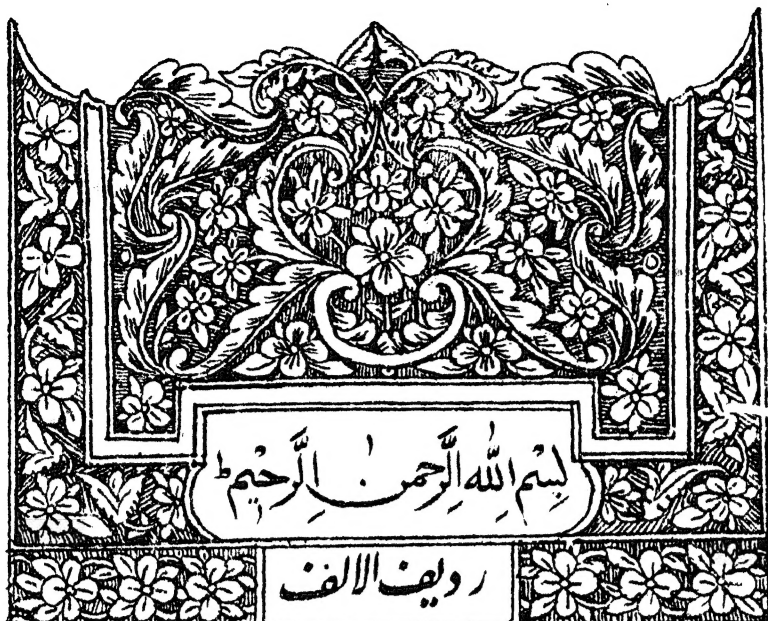 بِسْمِ اللهِ الرَّحمن الرَّحِيْمِ ط
ردیف الالف